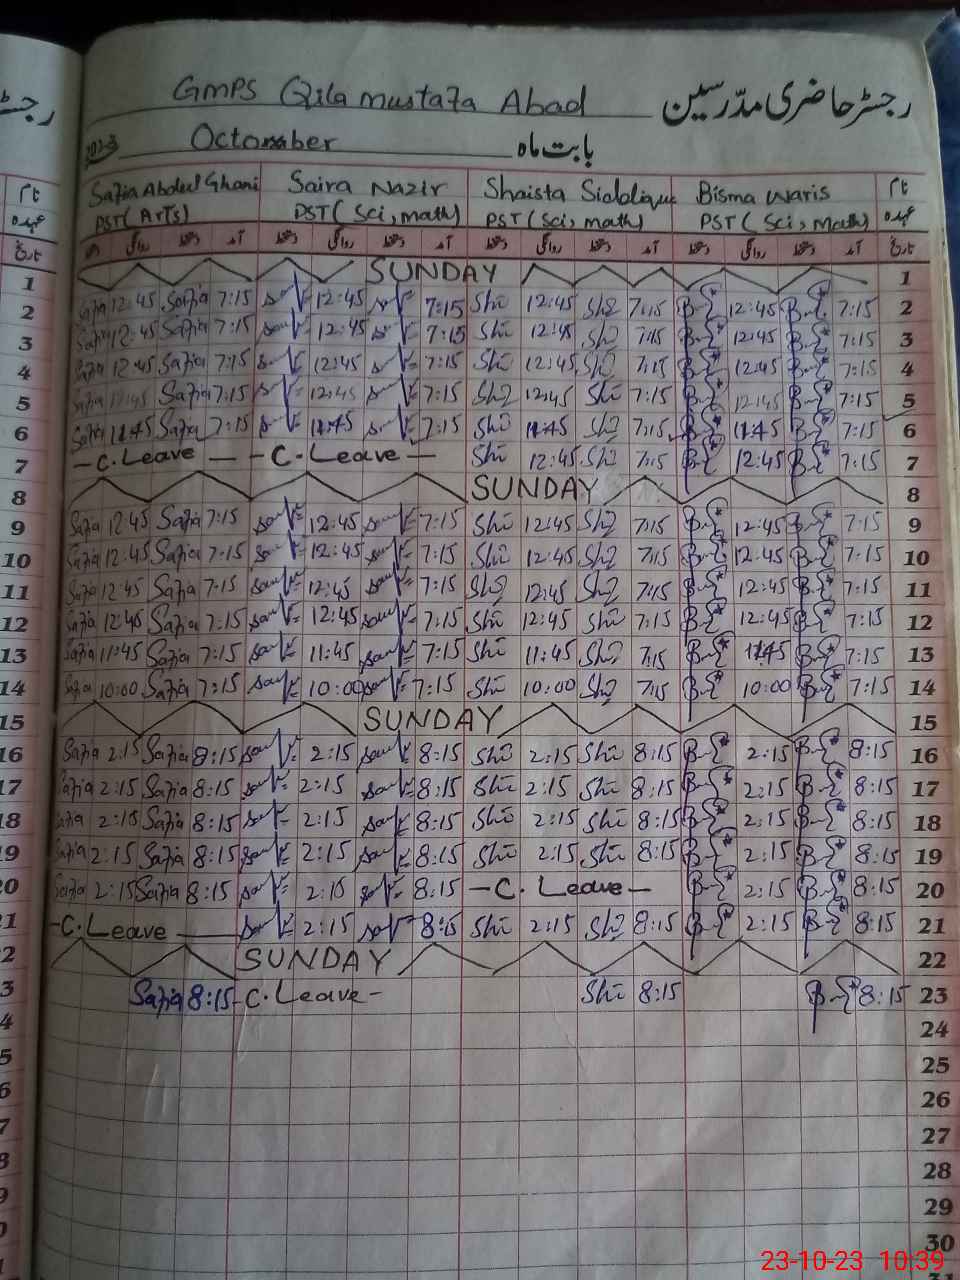 GMPS Qila mustafa Abad رجسٹر حاضری مدرسین
2023 Octomber بابت ماہ
Safia Abdul Ghani Saira Nazir Shaista Siddique Bisma waris نام
PST (Arts) PST ( Sci, math) PST (Sci, math) PST ( Sci, math) عہدہ
روانگی دستخط آمد دستخط روانگی دستخط آمد دستخط روانگی دستخط آمد دستخط روانگی دستخط آمد تاریخ
SUNDAY 1
Safia 12:45 Safia 7:15 12:45 7:15 Shi 12:45 Shi 7:15 12:45 7:15 2
Safia 12:45 Safia 7:15 12:45 7:15 Shi 12:45 Shi 7:15 12:45 7:15 3
Safia 12:45 Safia 7:15 12:45 7:15 Shi 12:45 Shi 7:15 12:45 7:15 4
Safia 12:45 Safia 7:15 12:45 7:15 Shi 12:45 Shi 7:15 12:45 7:15 5
Safia 11:45 Safia 7:15 11:45 7:15 Shi 11:45 Shi 7:15 11:45 7:15 6
- C. Leave - - C. Leave - Shi 12:45 Shi 7:15 12:45 7:15 7
SUNDAY 8
Safia 12:45 Safia 7:15 12:45 7:15 Shi 12:45 Shi 7:15 12:45 7:15 9
Safia 12:45 Safia 7:15 12:45 7:15 Shi 12:45 Shi 7:15 12:45 7:15 10
Safia 12:45 Safia 7:15 12:45 7:15 Shi 12:45 Shi 7:15 12:45 7:15 11
Safia 12:45 Safia 7:15 12:45 7:15 Shi 12:45 Shi 7:15 12:45 7:15 12
Safia 11:45 Safia 7:15 11:45 7:15 Shi 11:45 Shi 7:15 11:45 7:15 13
Safia 10:00 Safia 7:15 10:00 7:15 Shi 10:00 Shi 7:15 10:00 7:15 14
SUNDAY 15
Safia 2:15 Safia 8:15 2:15 8:15 Shi 2:15 Shi 8:15 2:15 8:15 16
Safia 2:15 Safia 8:15 2:15 8:15 Shi 2:15 Shi 8:15 2:15 8:15 17
Safia 2:15 Safia 8:15 2:15 8:15 Shi 2:15 Shi 8:15 2:15 8:15 18
Safia 2:15 Safia 8:15 2:15 8:15 Shi 2:15 Shi 8:15 2:15 8:15 19
Safia 2:15 Safia 8:15 2:15 8:15 - C. Leave - 2:15 8:15 20
- C. Leave - 2:15 8:15 Shi 2:15 Shi 8:15 2:15 8:15 21
SUNDAY 22
Safia 8:15 - C. Leave - Shi 8:15 8:15 23
24
25
26
27
28
29
30
23-10-23 10:39